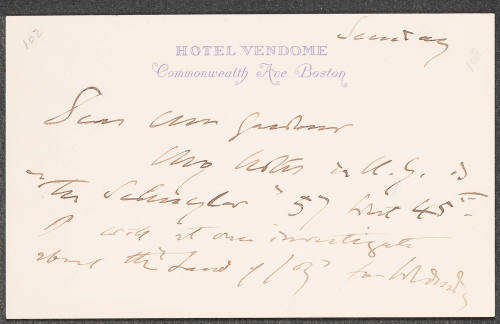 102
Sunday
108
HOTEL VENDOME
Commonwealth Ave. Boston
Dear Mrs Gardner
My hotel in N.Y. is
"The Schuyler" 57 West 45th
I will at once investigate
about the "Land of Joy" for Wednesday